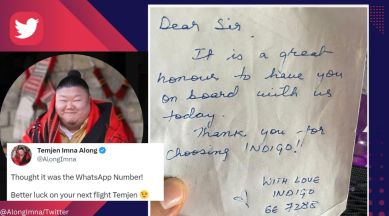 Dear Sir,
It is a great
honour to have you
on board with us
today.
Thank you for
choosing INDIGO!!
WITH LOVE
INDIGO
6E 7288
Temjen Imna Along
@AlongImna
Thought it was the WhatsApp Number!
Better luck on your next flight Temjen 😉
@AlongImna/Twitter